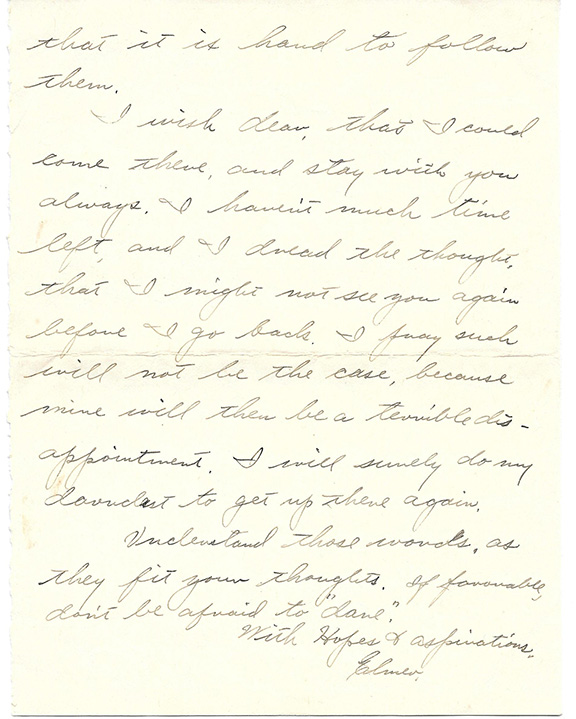 that it is hard to follow
them.
I wish dear, that I could
come there, and stay with you
always. I haven't much time
left, and I dread the thought,
that I might not see you again
before I go back. I pray such
will not be the case, because
mine will then be a terrible dis-
appointment. I will surely do my
darndest to get up there again.
Understand those words, as
they fit your thoughts. If favorable,
don't be afraid to "dare".
With Hopes & aspirations,
Elmer.